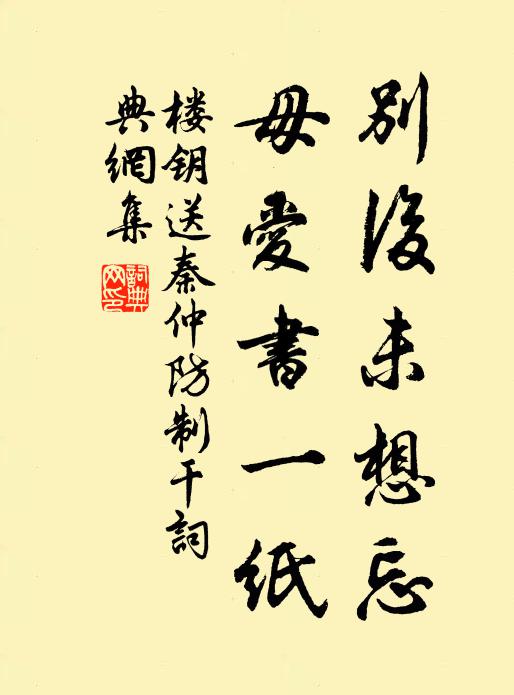 別後未想忘
毋愛書一紙
楼钥送秦仲防制干詞
典網集
詞典网印